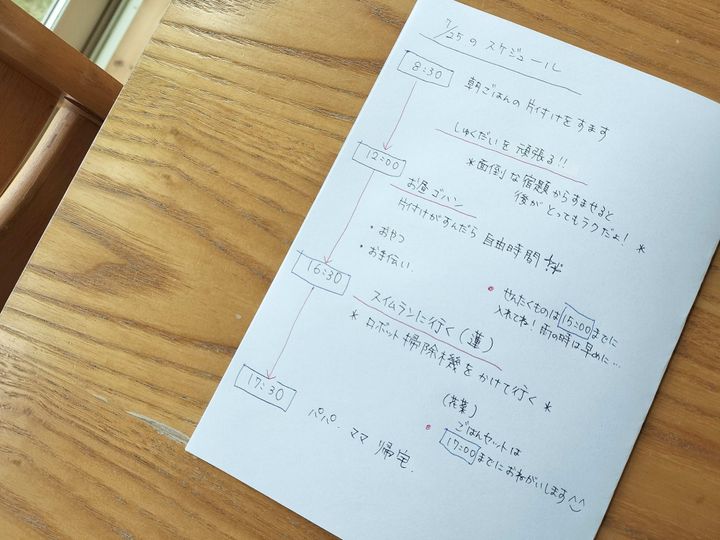 7/25のスケジュール
8:30
朝ごはんの片付けをすます
しゅくだいを頑張る!!
*面倒な宿題からすませると
後がとってもラクだよ! *
12:00
お昼ゴハン
片付けがすんだら自由時間
・おやつ
・お手伝い
• せんたくものは15:00までに
入れてね! 雨の時は早めに…
16:30
スイムランに行く(蓮)
* ロボット掃除機をかけて行く *
17:30
パパ、ママ 帰宅.
(花菜)
• ごはんセットは
17:00までにおねがいします^^